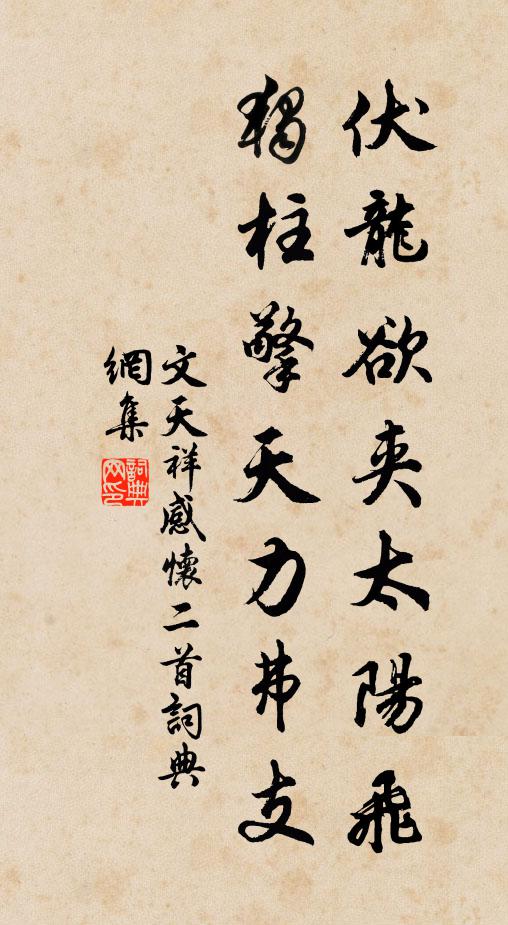 伏龍欲夾太陽飛
獨柱擎天力弗支
文天祥感懷二首詞典
網集
詞典網印